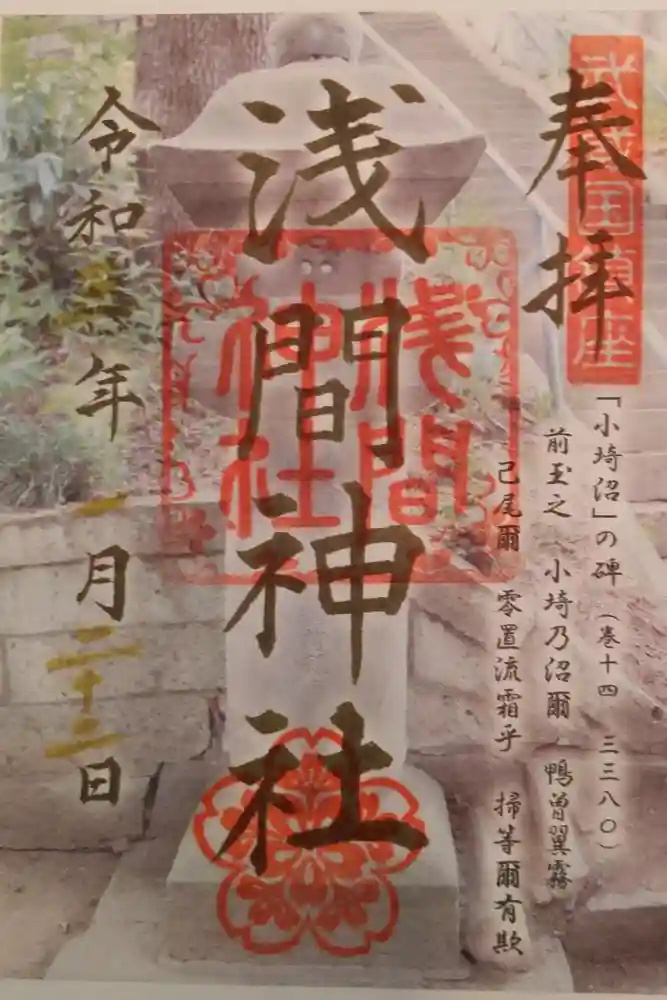 武蔵国鎮座
奉拝
「小埼沼」の碑（巻十四　三三八〇）
前玉之　小埼乃沼爾　鴨曽翼霧
己尾爾　零置流霜乎　掃等爾有欺
浅間神社
浅間
神社
令和三年一月二十二日